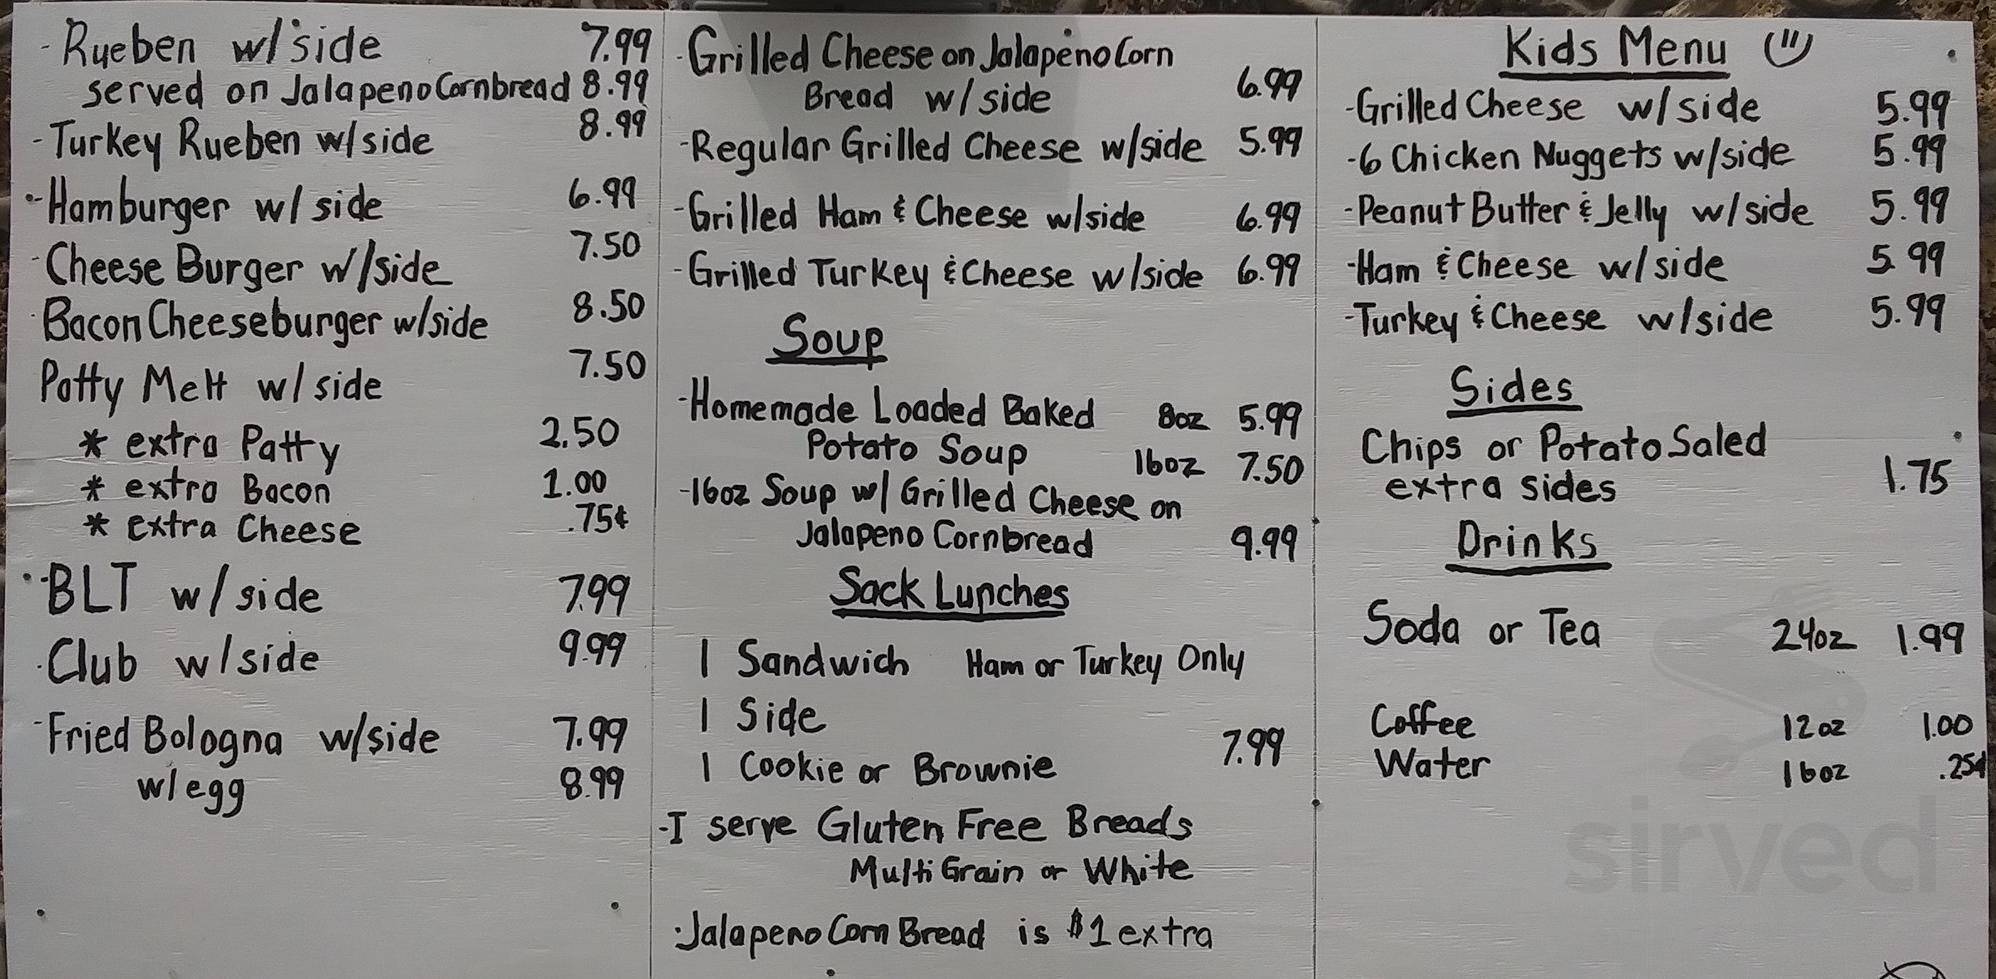 -Rueben w/side 7.99
served on Jalapeno Cornbread 8.99
-Turkey Rueben w/side 8.99
-Hamburger w/ side 6.99
-Cheese Burger w/side 7.50
-Bacon Cheeseburger w/side 8.50
Patty Melt w/ side 7.50
* extra Patty 2.50
* extra Bacon 1.00
* Extra Cheese .75¢
-BLT w/ side 7.99
-Club w/side 9.99
-Fried Bologna w/side 7.99
w/egg 8.99
-Grilled Cheese on Jalapeno Corn
Bread w/side 6.99
-Regular Grilled Cheese w/side 5.99
-Grilled Ham & Cheese w/side 6.99
-Grilled Turkey & Cheese w/side 6.99
Soup
-Homemade Loaded Baked 8oz 5.99
Potato Soup 16oz 7.50
-16oz Soup w/ Grilled Cheese on
Jalapeno Cornbread 9.99
Sack Lunches
1 Sandwich Ham or Turkey Only
1 Side
1 Cookie or Brownie 7.99
-I serve Gluten Free Breads
Multi Grain or White
-Jalapeno Corn Bread is $1 extra
Kids Menu
-Grilled Cheese w/side 5.99
-6 Chicken Nuggets w/side 5.99
-Peanut Butter & Jelly w/side 5.99
-Ham & Cheese w/side 5.99
-Turkey & Cheese w/side 5.99
Sides
Chips or Potato Saled
extra sides 1.75
Drinks
Soda or Tea 24oz 1.99
Coffee 12oz 1.00
Water 16oz .25¢
sirved